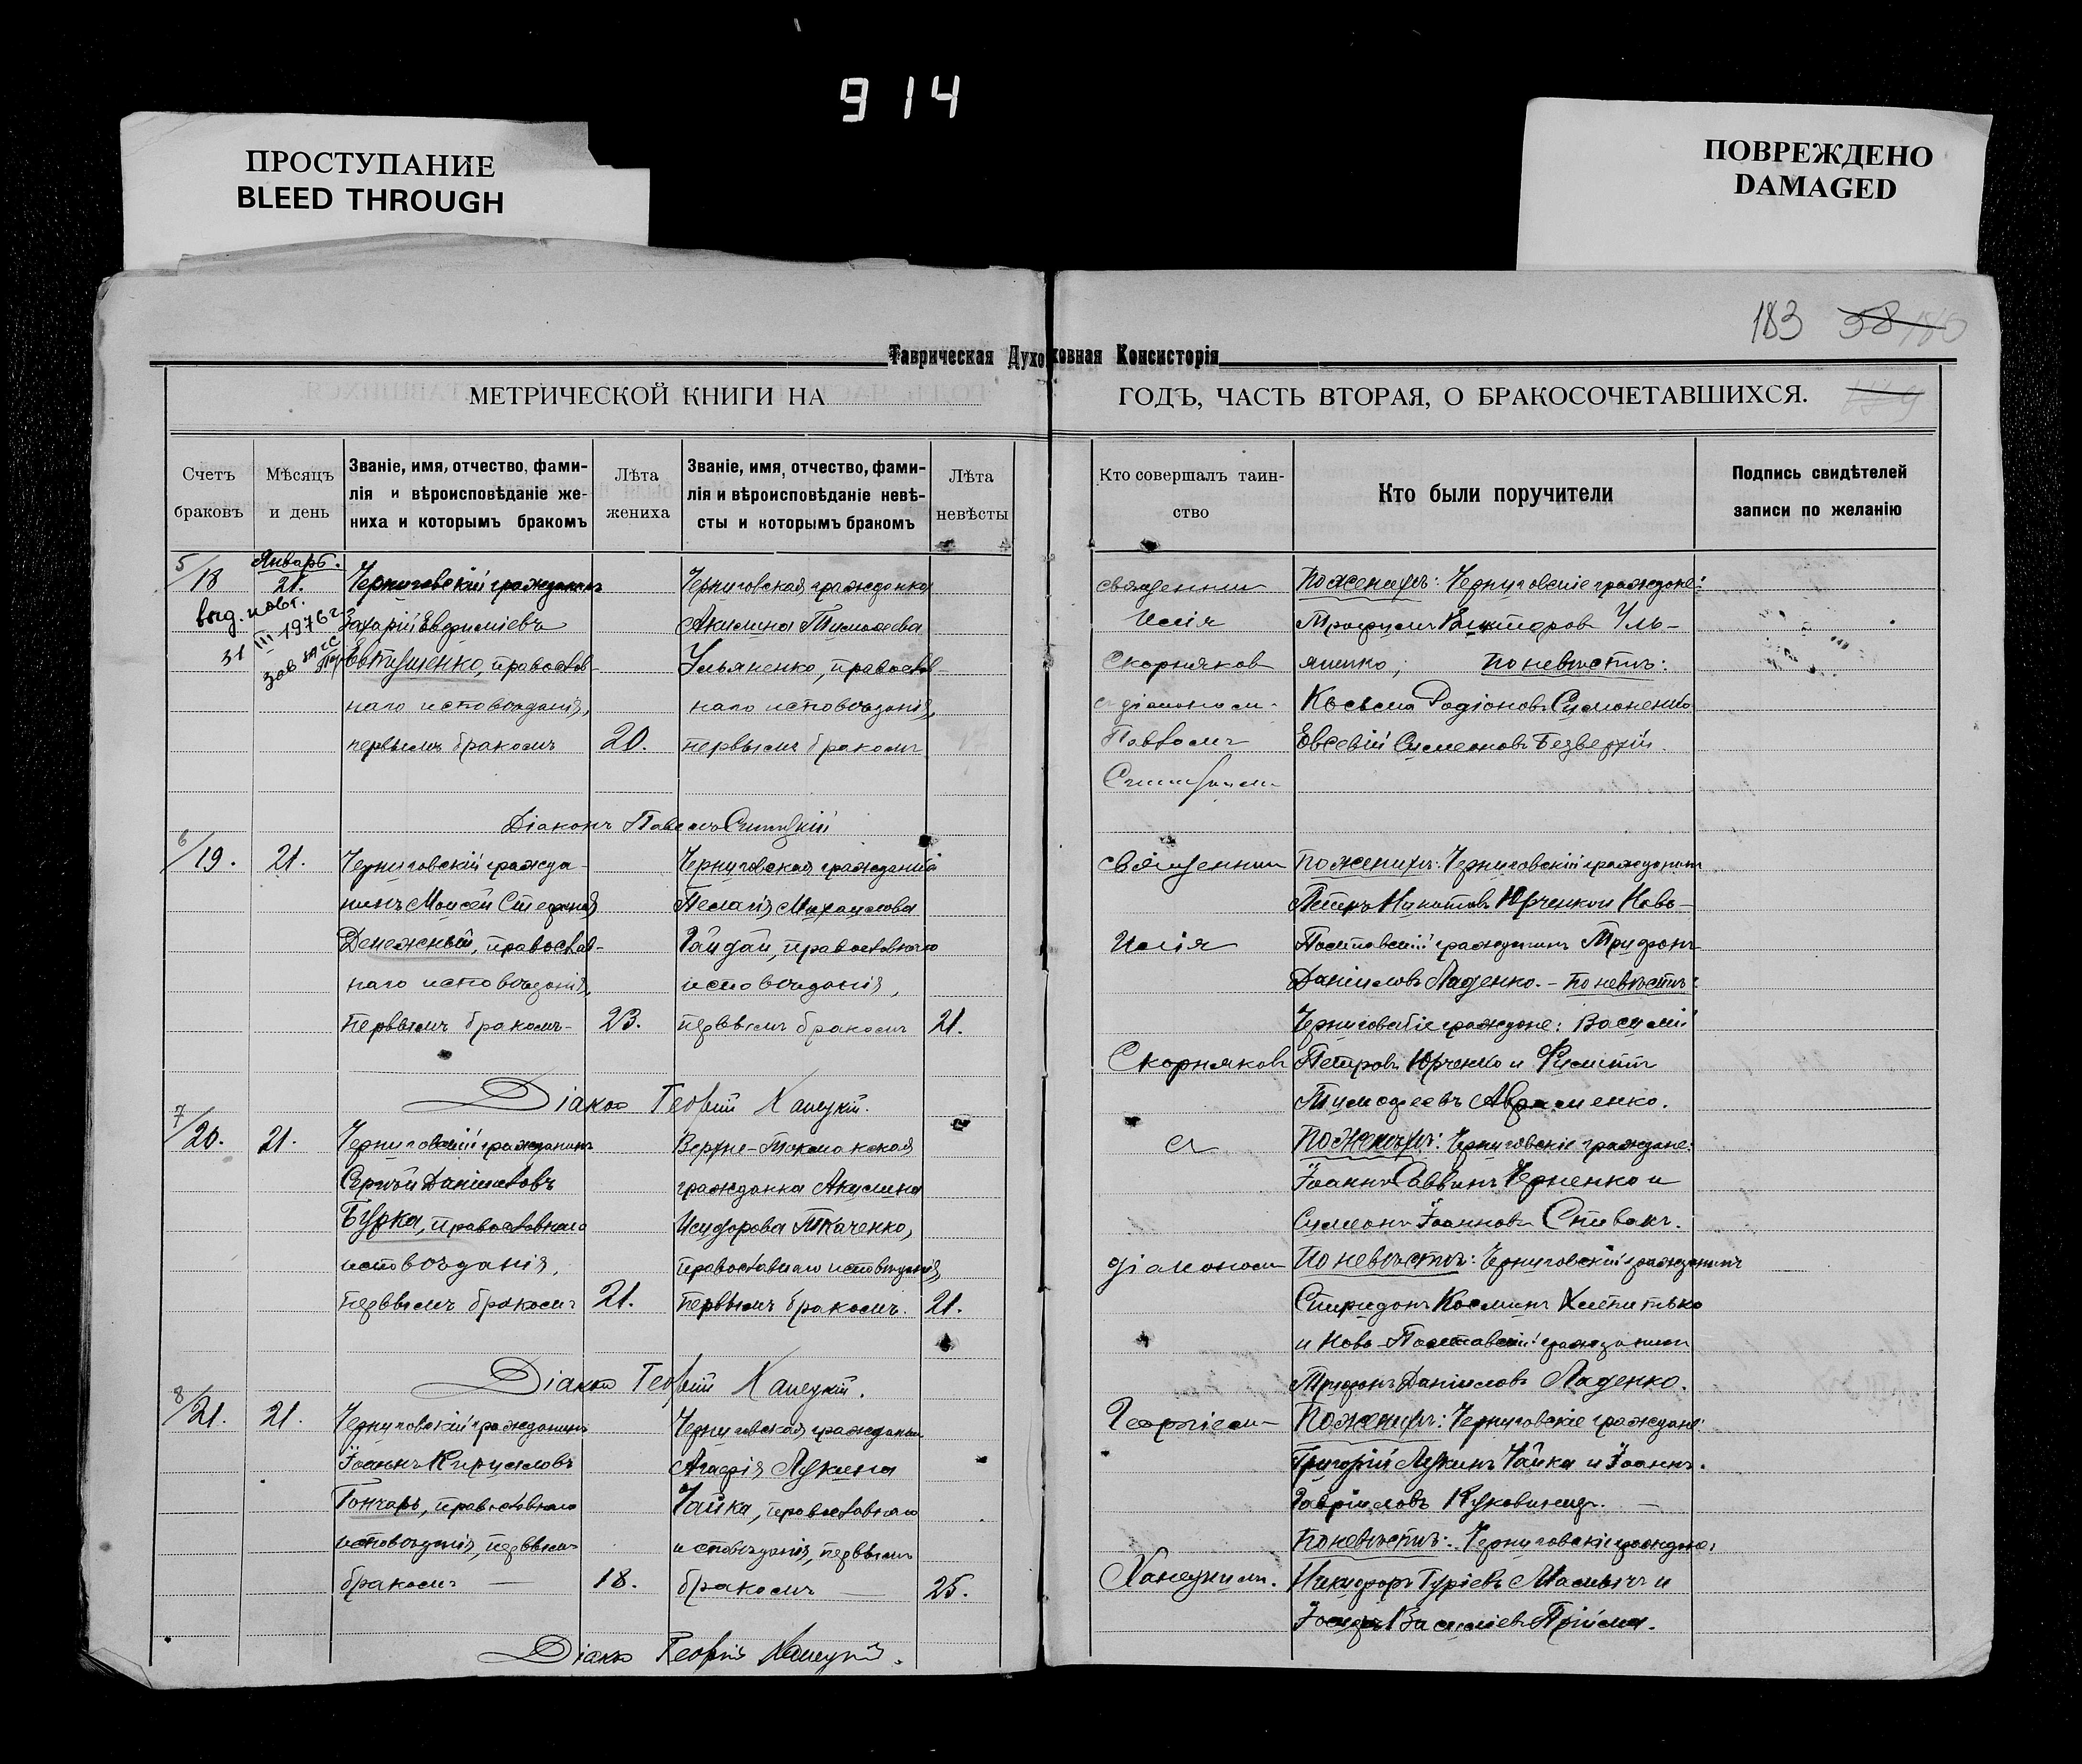 914
ПРОСТУПАНИЕ
BLEED THROUGH
ПОВРЕЖДЕНО
DAMAGED
183 58
Таврическая Духовная Консисторія
МЕТРИЧЕСКОЙ КНИГИ НА
ГОДЪ, ЧАСТЬ ВТОРАЯ, О БРАКОСОЧЕТАВШИХСЯ.
Счетъ
браковъ
Мѣсяцъ
и день
Званіе, имя, отчество, фами-
лія и вѣроисповѣданіе же-
ниха и которымъ бракомъ
Лѣта
жениха
Званіе, имя, отчество, фами-
лія и вѣроисповѣданіе невѣ-
сты и которымъ бракомъ
Лѣта
невѣсты
Кто совершалъ таин-
ство
Кто были поручители
Подпись свидѣтелей
записи по желанію
5/18
Январь.
21.
выд. повт.
31 III 1976 г.
зав
Черниговскій гражданинъ
Захарій Евфиміевъ
Евтушенко, православ-
наго исповѣданія,
первымъ бракомъ
20.
Черниговская гражданка
Акилина Тимофеева
Ульяненко, православ-
наго исповѣданія,
первымъ бракомъ
священник
Илія
Скорняков
с діаконом
Павлом
По женихѣ: Черниговскіе граждане:
Трофимъ Викторов Уль-
яненко; По невѣстѣ:
Косьма Родіоновъ Симоненко
Евсевій Симеоновъ Безверхій.
Діаконъ Павелъ
6/19.
21.
Черниговскій гражда-
нинъ Моисей Стефанов
Денежный, православ-
наго исповѣданія,
первымъ бракомъ
23.
Черниговская гражданка
Пелагія Михаилова
Гайдай, православнаго
исповѣданія,
первымъ бракомъ
21.
священник
Илія
Скорняков
По женихѣ: Черниговскій гражданинъ
Петръ Никитовъ Юрченко и Ново-
Полтавскій гражданинъ Трифонъ
Даніиловъ Ладенко. - По невѣстѣ:
Черниговскіе граждане: Василій
Петровъ Юрченко и Филиппъ
Тимофеевъ Авраменко.
Діакон Георгій Ханецкій.
7/20.
21.
Черниговскій гражданинъ
Сергѣй Даніиловъ
Бурка, православнаго
исповѣданія,
первымъ бракомъ
21.
Верхне-Токмакская
гражданка Акилина
Исидорова Ткаченко,
православнаго исповѣданія,
первымъ бракомъ.
21.
с
діаконом
По женихѣ: Черниговскіе граждане:
Іоаннъ Саввинъ Черненко и
Симеонъ Іоанновъ Спивакъ.
По невѣстѣ: Черниговскій гражданинъ
Спиридонъ Косминъ
и Ново-Полтавскій гражданинъ
Трифонъ Даніиловъ Ладенко.
Діакон Георгій Ханецкій.
8/21.
21.
Черниговскій гражданинъ
Іоаннъ Кирилловъ
Гончаръ, православнаго
исповѣданія, первымъ
бракомъ —
18.
Черниговская гражданка
Агафія Лукина
Чайка, православнаго
исповѣданія, первымъ
бракомъ —
25.
Георгіем
Ханецким.
По женихѣ: Черниговскіе граждане:
Григорій Лукинъ Чайка и Іоаннъ
Гавріиловъ
По невѣстѣ: Черниговскіе граждане:
Никифоръ Гуріевъ и
Іосифъ Василіевъ Прійма.
Діакон Георгій Ханецкій.